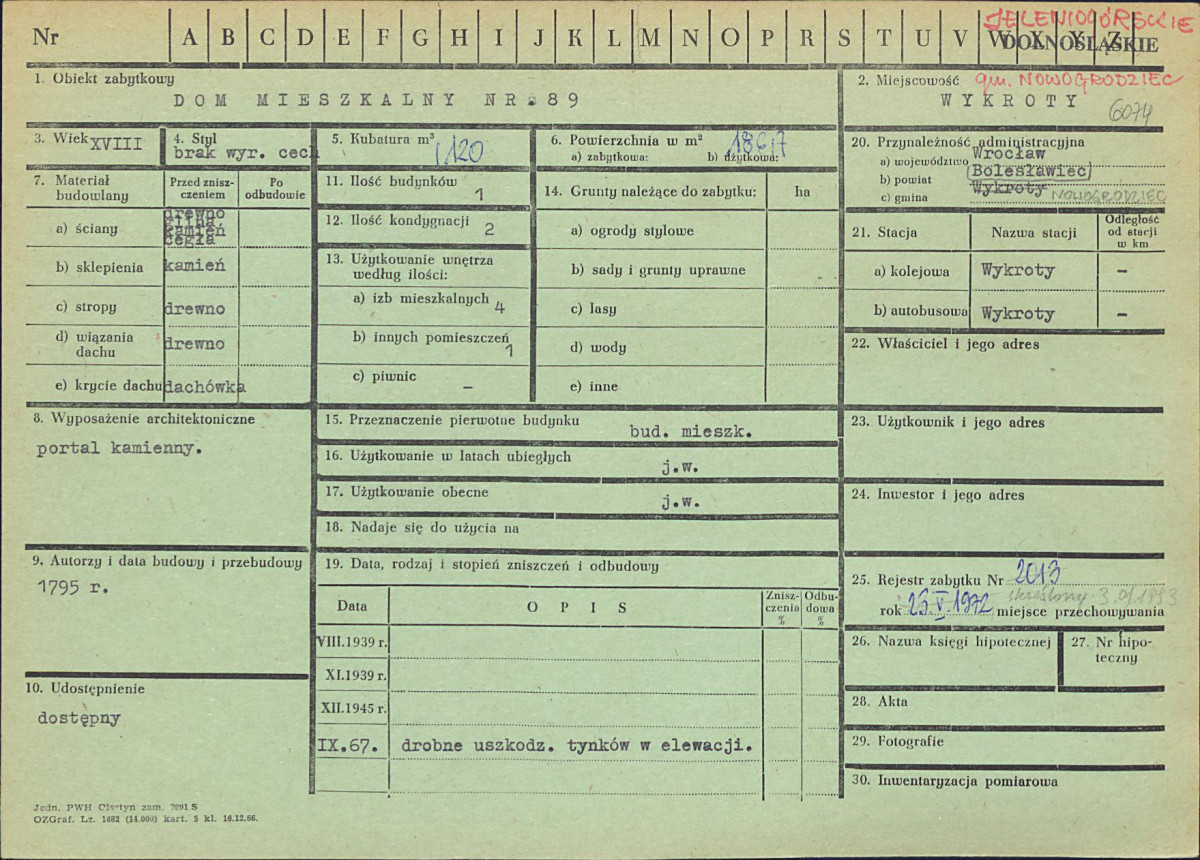 JELENIOGÓRSKIE
Nr A B C D E F G H I J K L M N O P R S T U V W X Y Z
DOLNOŚLĄSKIE
1. Obiekt zabytkowy
DOM MIESZKALNY NR.89
2. Miejscowość gm. NOWOGRODZIEC
WYKROTY
6074
3. Wiek XVIII
4. Styl
brak wyr. cech
5. Kubatura m³
1.120
6. Powierzchnia w m²
a) zabytkowa: b) użytkowa:
186,7
20. Przynależność administracyjna
a) województwo Wrocław
b) powiat (Bolesławiec)
c) gmina Wykroty NOWOGRODZIEC
7. Materiał budowlany
Przed zniszczeniem
Po odbudowie
a) ściany
drewno
glina
kamień
cegła
b) sklepienia kamień
c) stropy drewno
d) wiązania dachu drewno
e) krycie dachu dachówka
11. Ilość budynków
1
12. Ilość kondygnacji 2
13. Użytkowanie wnętrza
według ilości:
a) izb mieszkalnych 4
b) innych pomieszczeń
1
c) piwnic –
14. Grunty należące do zabytku: ha
a) ogrody stylowe
b) sady i grunty uprawne
c) lasy
d) wody
e) inne
21. Stacja Nazwa stacji Odległość od stacji w km
a) kolejowa Wykroty –
b) autobusowa Wykroty –
22. Właściciel i jego adres
8. Wyposażenie architektoniczne
portal kamienny.
15. Przeznaczenie pierwotne budynku
bud. mieszk.
16. Użytkowanie w latach ubiegłych
j.w.
17. Użytkowanie obecne
j.w.
18. Nadaje się do użycia na
23. Użytkownik i jego adres
24. Inwestor i jego adres
9. Autorzy i data budowy i przebudowy
1795 r.
10. Udostępnienie
dostępny
19. Data, rodzaj i stopień zniszczeń i odbudowy
Data OPIS Zniszczenia % Odbudowa %
VIII.1939 r.
XI.1939 r.
XII.1945 r.
IX.67. drobne uszkodz. tynków w elewacji.
25. Rejestr zabytku Nr 2013
skreślony 3.01.1993
rok 25.V.1972 miejsce przechowywania
26. Nazwa księgi hipotecznej
27. Nr hipoteczny
28. Akta
29. Fotografie
30. Inwentaryzacja pomiarowa
Jedn. PWH Olsztyn zam. 7091 S
OZGraf. Lz. 1882 (14.000) kart. 5 kl. 16.12.66.